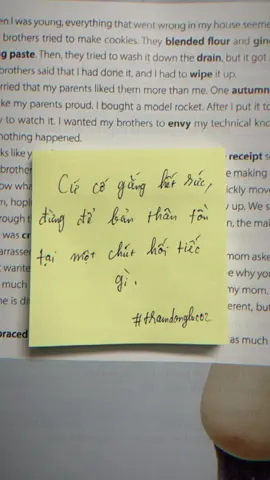 en I was young, everything that went wrong in my house seeme
brothers tried to make cookies. They blended flour and gin
ng paste. Then, they tried to wash it down the drain, but it got
brothers said that I had done it, and I had to wipe it up.
rried that my parents liked them more than me. One autumn
ke my parents proud, I bought a model rocket. After I put it to
y to watch it. I wanted my brothers to envy my technical know
nothing happened.
ks like y
receipt
brother
e making
ow wha
ickly move
m, hopi
up. We s
rough t
n, the mai
was cr
arrasse
mom aske
wante
e why you
much
my mom.
e is di
erent, but
braced
as much
Cứ cố gắng hết sức,
đừng để bản thân tồn
tại một chút hối tiếc
gì.